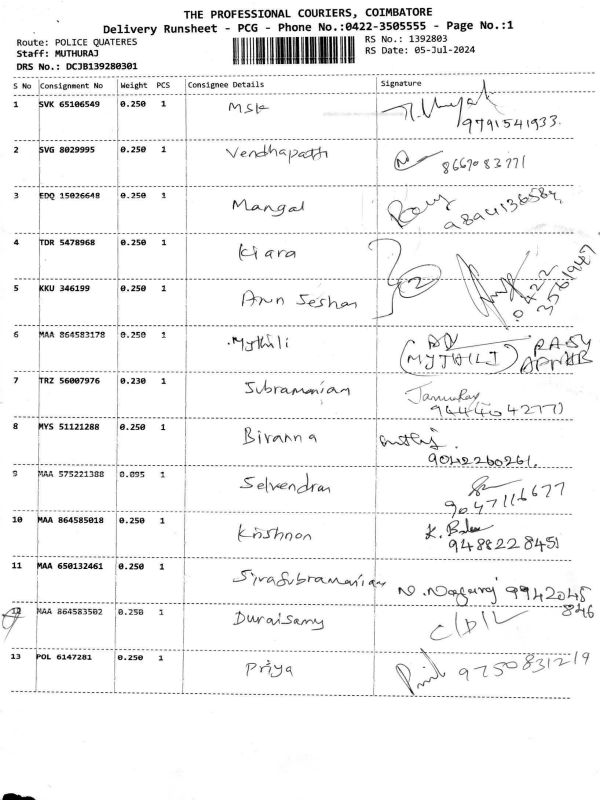 THE PROFESSIONAL COURIERS, COIMBATORE
Delivery Runsheet - PCG - Phone No.:0422-3505555 - Page No.:1
Route: POLICE QUATERES
Staff: MUTHURAJ
DRS No.: DCJB139280301
RS No.: 1392803
RS Date: 05-Jul-2024
S No Consignment No Weight PCS Consignee Details Signature
1 SVK 65106549 0.250 1 MSK
9791541933.
2 SVG 8029995 0.250 1 Vendhapath 8667083771
3 EDQ 15026648 0.250 1 Mangal
9894136584
4 TDR 5478968 0.250 1 Kiara
2
5 KKU 346199 0.250 1 Arun Seshan 0422 3561947
6 MAA 864583178 0.250 1 Mythili (MYTHILI)
7 TRZ 56007976 0.230 1 Subramanian
8 MYS 51121288 0.250 1 Biranna
9042260261.
9 MAA 575221388 0.095 1 Selvendran
9047116677
10 MAA 864585018 0.250 1 Krishnan
9488228451
11 MAA 650132461 0.250 1 Sivasubramanian N. Nagaraj 9942045
846
12 MAA 864583502 0.250 1 Duraisamy C/D/L
13 POL 6147281 0.250 1 Priya 9750831219